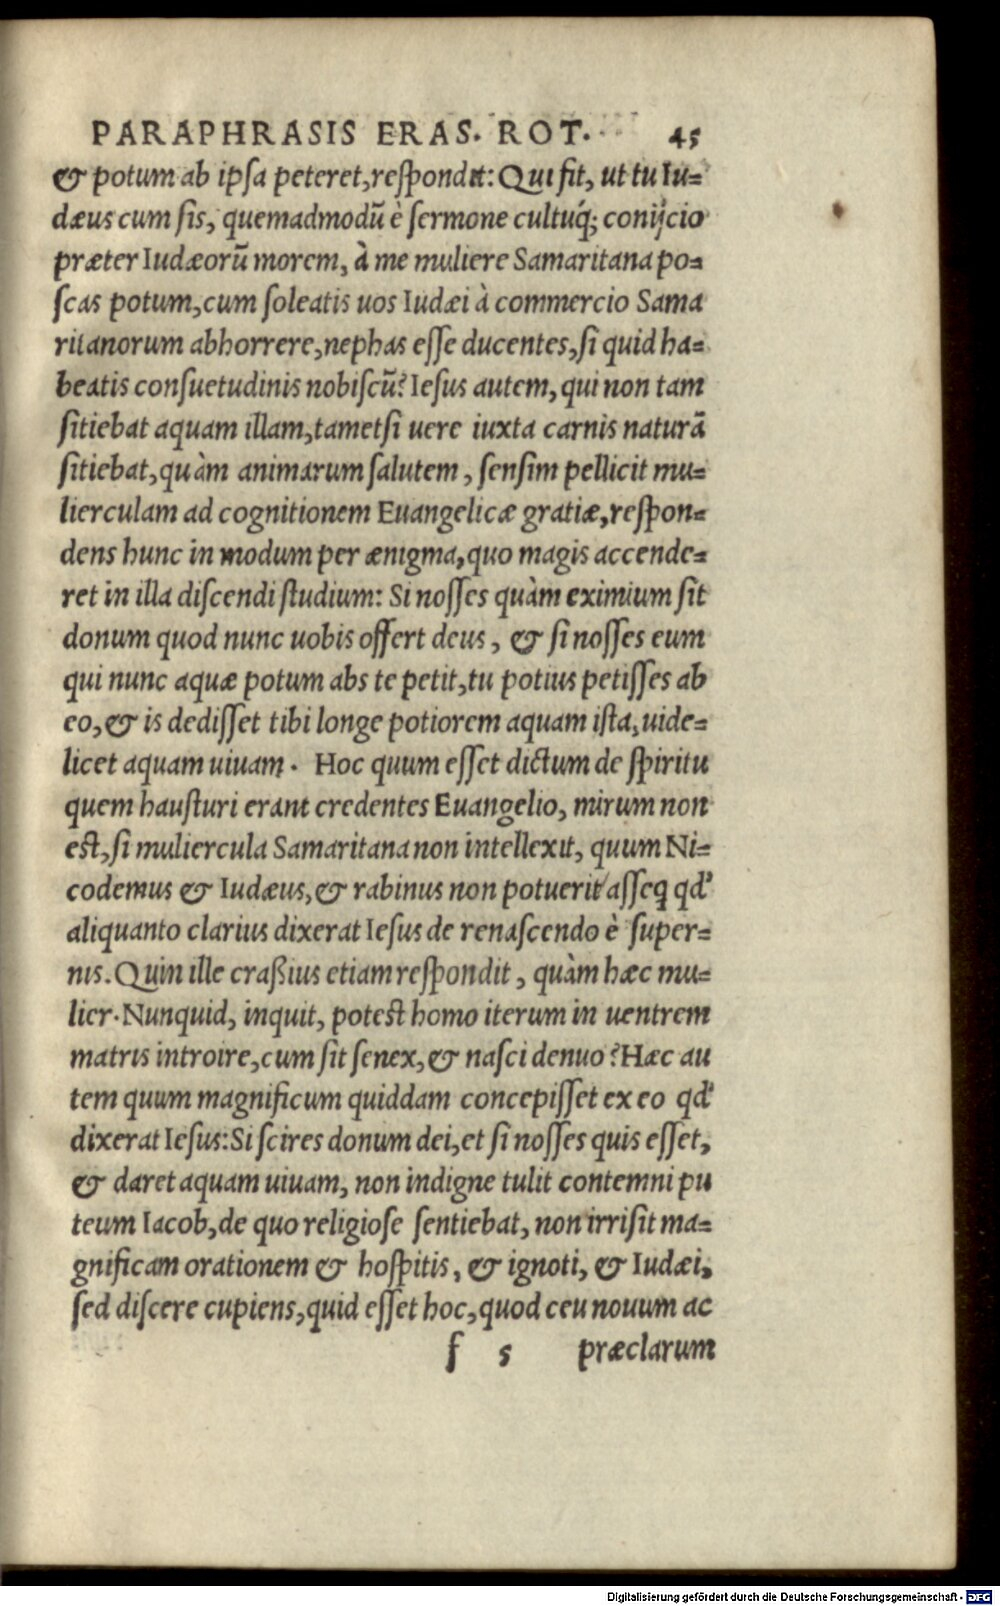 PARAPHRASIS ERAS. ROT. 45
& potum ab ipsa peteret, respondit: Qui fit, ut tu Iu=
dæus cum sis, quemadmodū è sermone cultuq́; conijcio
præter Iudæorū morem, à me muliere Samaritana po=
scas potum, cum soleatis uos Iudæi à commercio Sama
ritanorum abhorrere, nephas esse ducentes, si quid ha=
beatis consuetudinis nobiscū? Iesus autem, qui non tam
sitiebat aquam illam, tametsi uere iuxta carnis naturā
sitiebat, quàm animarum salutem, sensim pellicit mu=
lierculam ad cognitionem Euangelicæ gratiæ, respon=
dens hunc in modum per ænigma, quo magis accende=
ret in illa discendi studium: Si nosses quàm eximium sit
donum quod nunc uobis offert deus, & si nosses eum
qui nunc aquæ potum abs te petit, tu potius petisses ab
eo, & is dedisset tibi longe potiorem aquam ista, uide=
licet aquam uiuam. Hoc quum esset dictum de spiritu
quem hausturi erant credentes Euangelio, mirum non
est, si muliercula Samaritana non intellexit, quum Ni=
codemus & Iudæus, & rabinus non potuerit asseq qd'
aliquanto clarius dixerat Iesus de renascendo è super=
nis. Quin ille craßius etiam respondit, quàm hæc mu=
lier. Nunquid, inquit, potest homo iterum in uentrem
matris introire, cum sit senex, & nasci denuo? Hæc au
tem quum magnificum quiddam concepisset ex eo qd'
dixerat Iesus: Si scires donum dei, et si nosses quis esset,
& daret aquam uiuam, non indigne tulit contemni pu
teum Iacob, de quo religiose sentiebat, non irrisit ma=
gnificam orationem & hospitis, & ignoti, & Iudæi,
sed discere cupiens, quid esset hoc, quod ceu nouum ac
f 5 præclarum
Digitalisierung gefördert durch die Deutsche Forschungsgemeinschaft - DFG